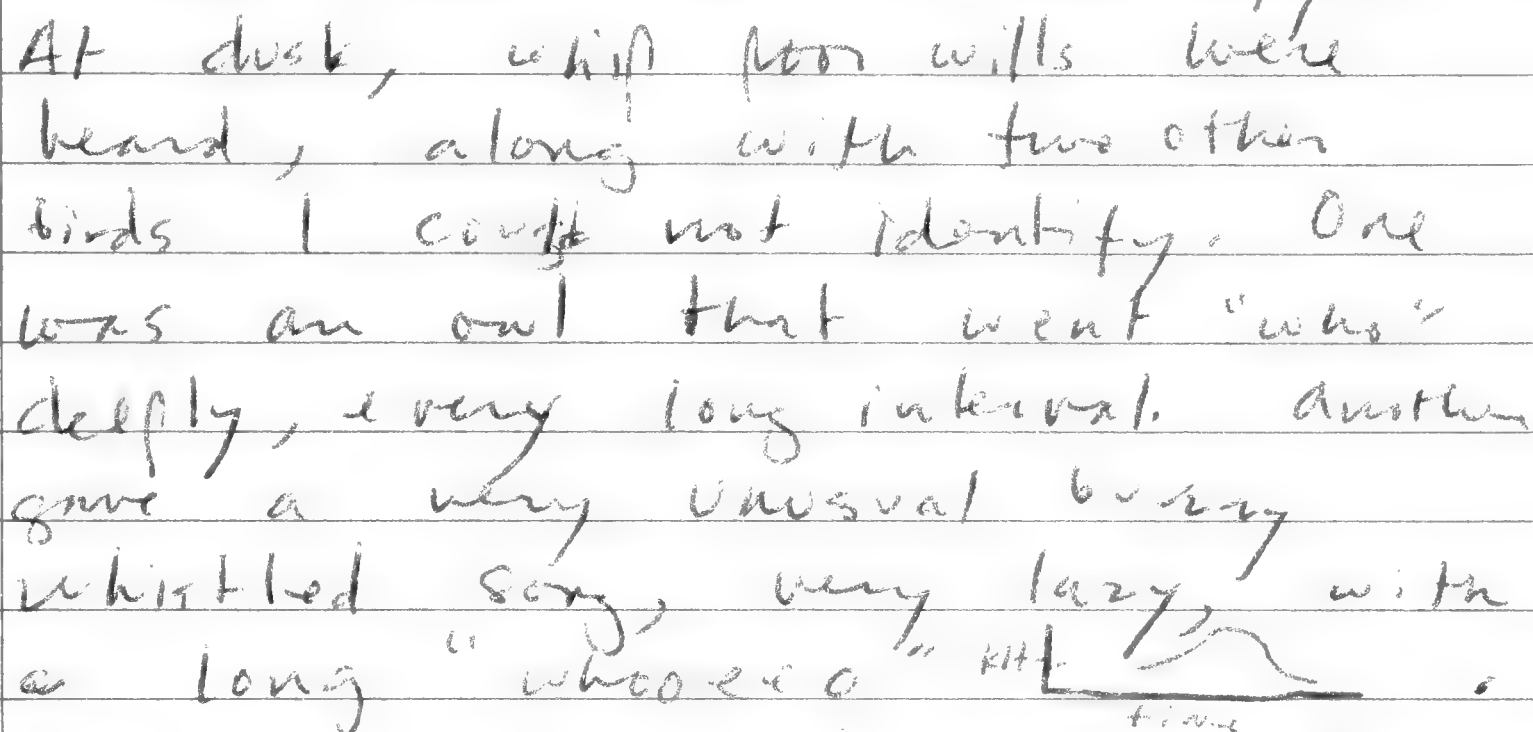 At dusk, whip poor wills were
heard, along with two other
birds I could not identify. One
was an owl that went "who"
deeply, every long interval. Another
gave a very unusual burry
whistled song, very lazy, with
a long "whooeeo" KHz .
time